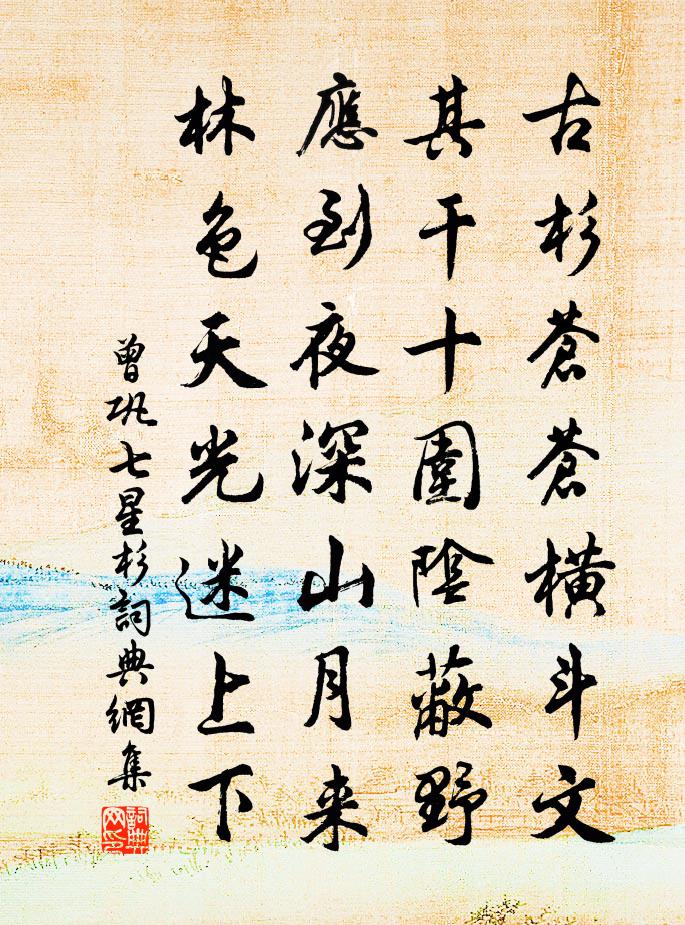 古杉蒼蒼橫斗文
其干十圍陰蔽野
應到夜深山月来
林色天光迷上下
曾巩七星杉詞典網集
詞典
网印